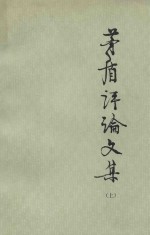 茅盾评论文集
(上)